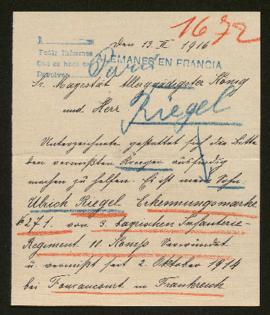 1672
Den 13. II 1916
ALEMANES EN FRANCIA
Paris
Sr. Magestät Allergnädigster König
und Herr
Riegel
Unterzeichnete gestattet sich die Bitte
den vermißten Krieger ausfindig
machen zu helfen. Es ist mein Sohn
Ulrich Riegel Erkennungsmarke
№ 271. vom 3. bayrischen Infanterie-
Regiment 11. Komp. Verwundet
u. vermißt seit 2. Oktober 1914
bei Foucaucourt in Frankreich